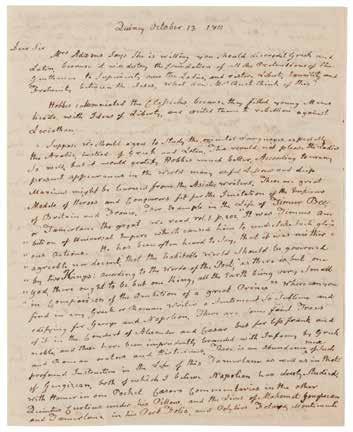 Quincy October 13 1810
Dear Sir
Mrs Adams says she is willing you should discredit Greek and
Latin, because it will destroy the foundation of all the Pretensions of the
Gentlemen to Superiority over the Ladies, and restore Liberty, Equality and
Fraternity between the Sexes. What does Mrs Rush think of this?
Hobbes calumniated the Classicks because they filled young Mens
heads with Ideas of Liberty, and excited them to rebellion against
Leviathan.
Suppose We should agree to study the oriental Languages especially
the Arabic, instead of Greek and Latin. This would not please the Ladies
so well, but it would gratify Hobbes much better. According to many
present appearances in the World many useful Lessons and deep
Maxims might be learned from the Asiatic Writers. There are great
Models of Heroes and Conquerors fit for the Imitation of the Emperors
of Britain and France. For Example in the Life of Timur Bec
or Tamerlane the great We read vol. 1. p. 202. It was Timurs Am-
bition of Universal Empire which caused him to undertake such glori-
ous Actions. He has been often heard to say, that it was neither
agreable nor decent, that the habitable World should be governed
by two Kings: according to the Words of the Poet, as there is but one
God, there ought to be but one King, all the Earth being very Small
in Comparison of the Ambition of a great Prince. Where can you
find in any Greek or Roman Writer a Sentiment so Sublime and
edifying for George and Napoleon. There are some faint Traces
of it in the Conduct of Alexander and Cæsar but far less frank and
noble, and these have been imprudently branded with Infamy by Greek
and Roman orators and Historians. There is an Abundance of such
profound Instruction in the Life of this Tamerlane as well as in that
of Gengizcan, both of which I believe Napoleon has closely studied.
With Homer in one Pocket Cæsars Commentaries in the other
Quintus Curtius under his Pillow, and the Lives of Mahomet Gengizcan
and Tamerlane in his Port Folio, and Polybius Folard, Montecuculi